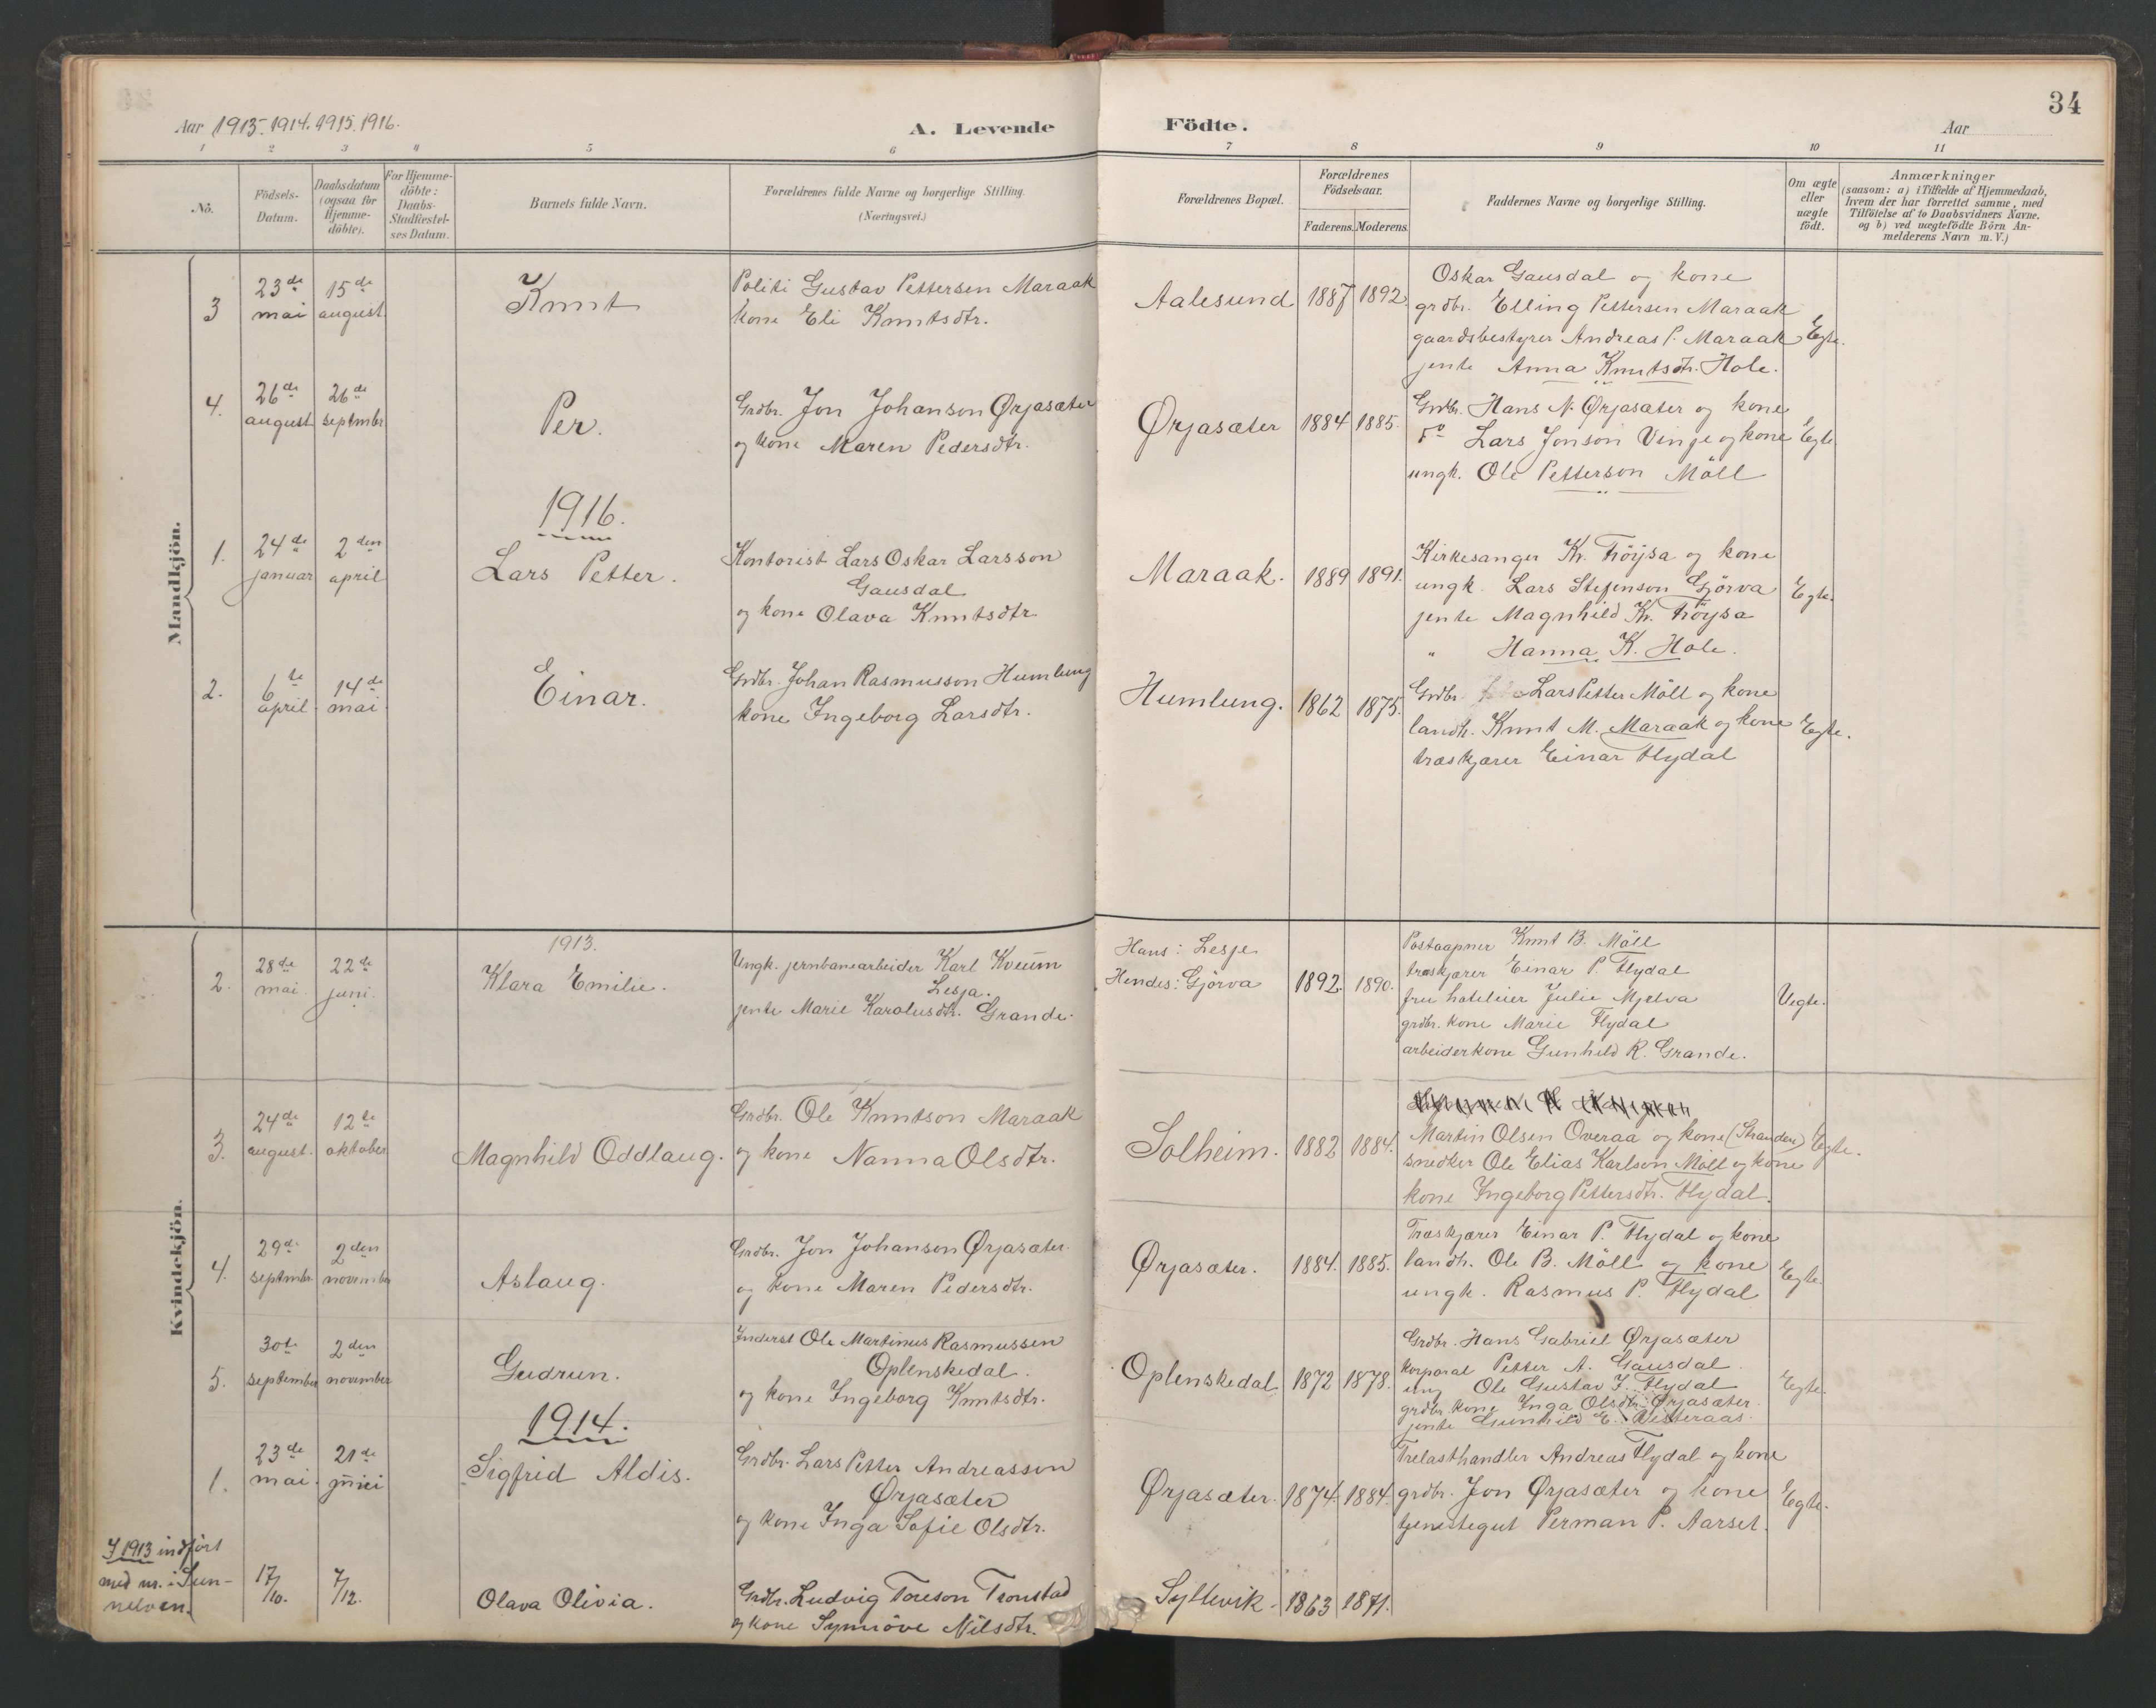 34
Aar 1913. 1914. 1915. 1916.
A. Levende Födte.
Aar
1 2 3 4 5 6 7 8 9 10 11
No.
Födsels-Datum.
Daabsdatum (ogsaa for Hjemme-döbte).
For Hjemme-döbte: Daabs-Stadfæstel-ses Datum.
Barnets fulde Navn.
Forældrenes fulde Navne og borgerlige Stilling. (Næringsvei.)
Forældrenes Bopæl.
Forældrenes Födselsaar.
Faderens. Moderens.
Faddernes Navne og borgerlige Stilling.
Om ægte eller uægte født.
Anmærkninger
(saasom: a) i Tilfælde af Hjemmedaab,
hvem der har forrettet samme, med
Tilføielse af to Daabsvidners Navne.
og b) ved uægtefödte Börn An-
melderens Navn m. V.)
Mandkjön.
3 23de mai 15de august Knut
Politi Gustav Pettersen Maraak
kone Eli Knutsdtr.
Aalesund 1887 1892.
Oskar Gausdal og kone
grdbr. Elling Pettersen Maraak
gaardsbestyrer Andreas P. Maraak
jente Anna Knutsdtr. Hole.
Egte.
4. 26de august 26de septmbr Per.
Grdbr. Jon Johanson Ørjasæter
og kone Maren Pedersdtr.
Ørjasæter 1884 1885.
Grdbr. Hans N. Ørjasæter og kone
Lars Jonson Vinje og kone
ungk. Ole Petterson Möll
Egte.
1916.
1. 24de januar 2den april Lars Petter.
Kontorist Lars Oskar Larsson
Gausdal
og kone Olava Knutsdtr.
Maraak. 1889 1891.
Kirkesanger Kr. Fröysa og kone
ungk. Lars Stefenson Gjörva
jente Magnhild Kr. Fröysa
" Hanna K. Hole.
Egte.
2. 6te april 14de mai Einar.
Grdbr. Johan Rasmusson Humlung
kone Ingeborg Larsdtr.
Humlung. 1862 1875.
Grdbr. Lars Petter Möll og kone
landh. Knut M. Maraak og kone
træskjærer Einar Flydal
Egte.
Kvindekjön.
1913.
2. 28de mai. 22de juni. Klara Emilie.
Ungk. jernbanearbeider Karl Kveum
Lesja.
jente Marie Karolusdtr. Grande.
Hans: Lesje
Hendes: Gjörva 1892. 1890.
Postaapner Knut B. Möll
træskjærer Einar P. Flydal
fru hoteleier Julie Mjelva
grdbr. kone Marie Flydal
arbeiderkone Gunhild R. Grande.
Uegte.
3. 24de august. 12te oktober Magnhild Oddlaug.
Grdbr. Ole Knutson Maraak
og kone Nanna Olsdtr.
Solheim. 1882 1884.
Martin Olsen Overaa og kone (Stranden)
snedker Ole Elias Karlson Möll og kone
kone Ingeborg Pettersdtr. Flydal.
Egte.
4. 29de septmbr 2den november Aslaug.
Grdbr. Jon Johanson Ørjasæter.
og kone Maren Pedersdtr.
Ørjasæter. 1884. 1885.
Træskjærer Einar P. Flydal og kone
landh. Ole B. Möll og kone
ungk. Rasmus P. Flydal
Egte.
5. 30te september 2den november Gudrun.
Inderst Ole Martinus Rasmussen
Oplenskedal.
og kone Ingeborg Knutsdtr.
Oplenskedal 1872 1878.
Grdbr. Hans Gabriel Ørjasæter
korporal Petter A. Gausdal
ung Ole Gustav J. Flydal
grdbr. kone Inga Olsdtr. Ørjasæter.
jente Gunhild E. Vesteraas.
Egte.
1914.
1. 23de mai. 21de juni Sigfrid Aldis.
Grdbr. Lars Petter Andreasson
Ørjasæter
og kone Inga Sofie Olsdtr.
Ørjasæter. 1874. 1884.
Trelasthandler Andreas Flydal og kone
grdbr. Jon Ørjasæter og kone
tjenestegut Perman P. Aarset.
Egte.
I 1913 indført
med nr. i Sun-
nelven.
17/10. 7/12. Olava Olivia.
Grdbr. Ludvig Toreson Tronstad
og kone Synnöve Nilsdtr.
Syltevik. 1863 1871.